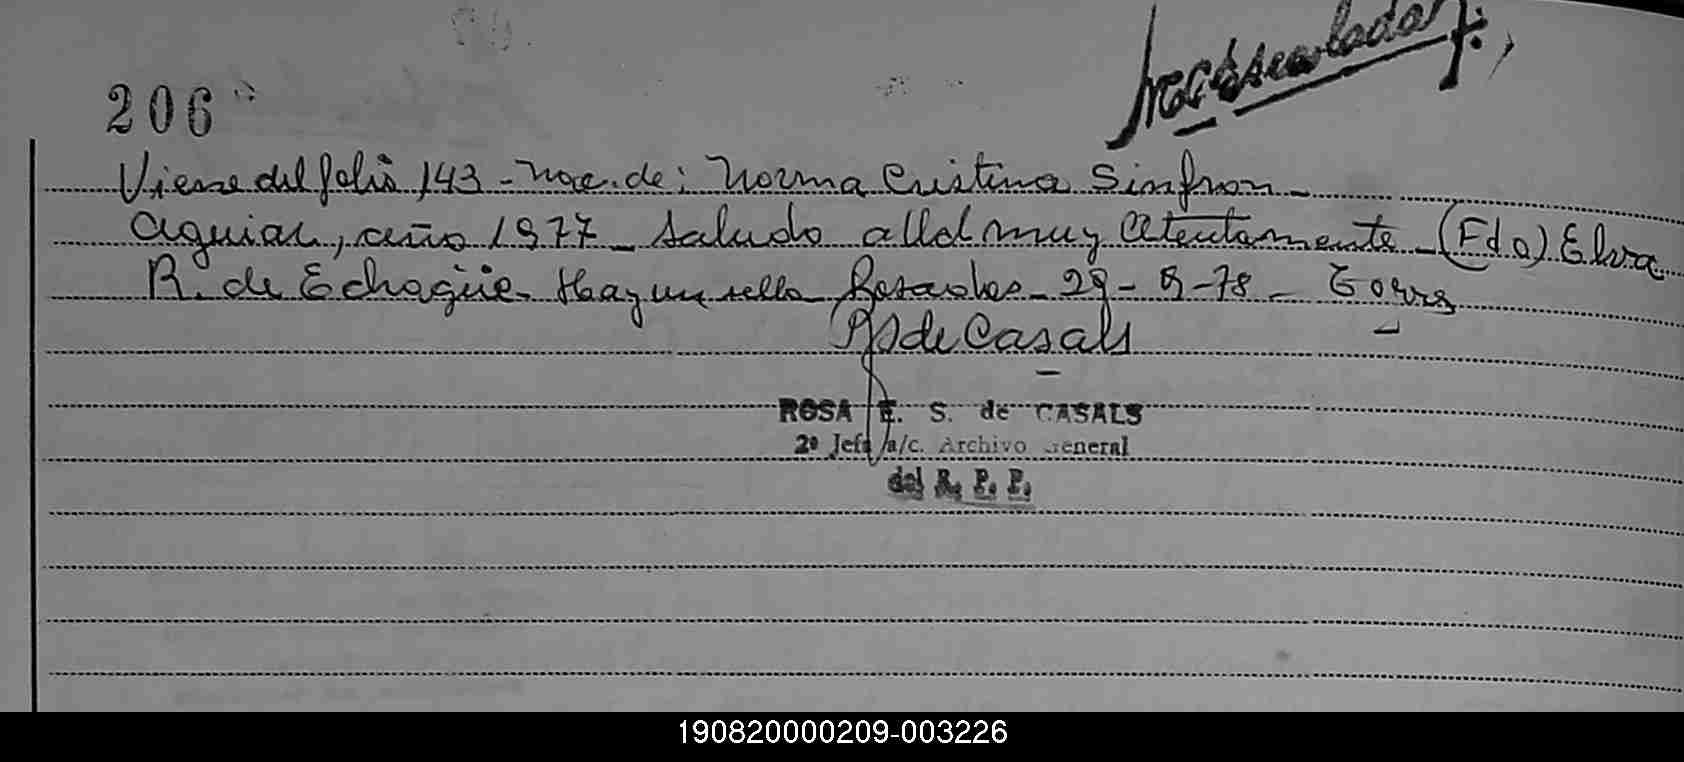 206
Viene del folio 143 - Nac. de: Norma Cristina Sinfron
Aguiar, año 1977 - Saludo a Ud muy Atentamente - (Fdo) Elva
R. de Echagüe. Hay un sello Rosados - 29 - 8 - 78 -
RS de Casals
ROSA E. S. de CASALS
2º Jefa a/c. Archivo General
del R. P. P.
190820000209-003226